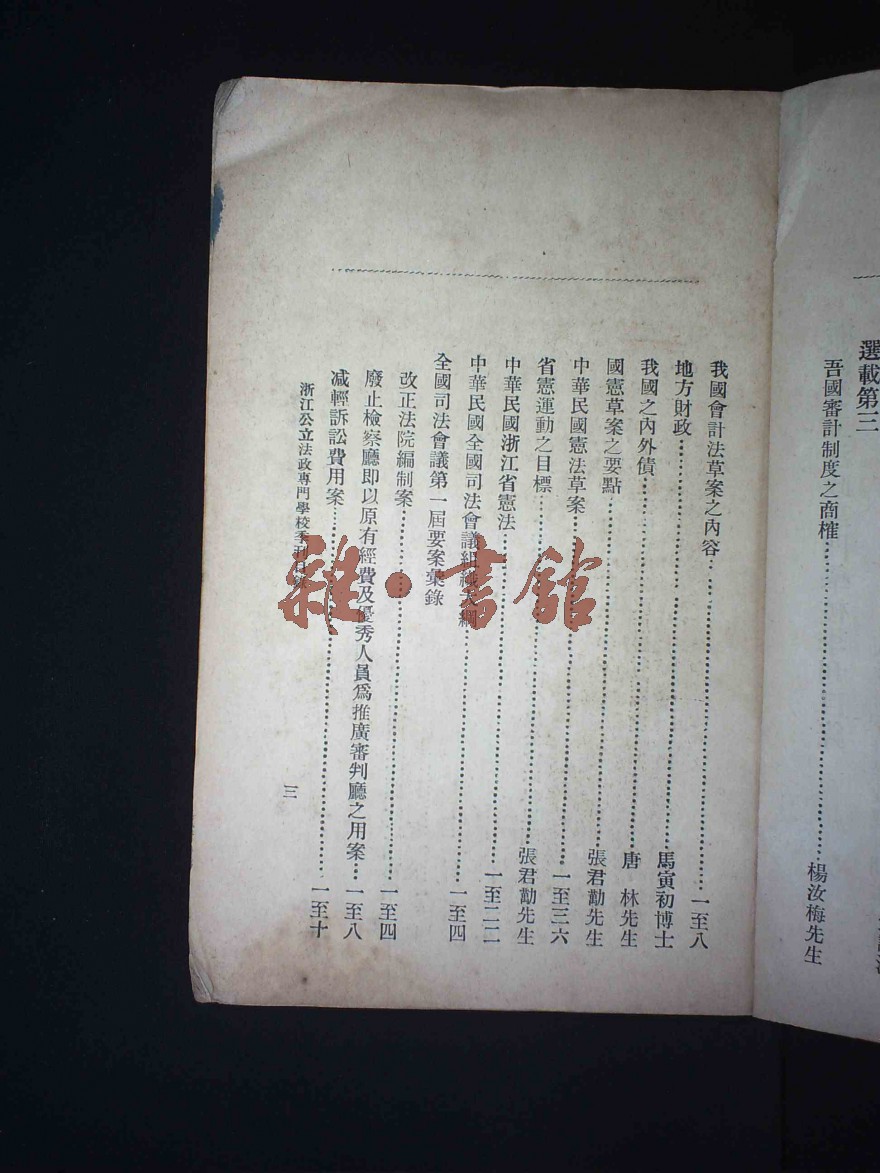 選載第三
吾國審計制度之商榷……楊汝梅先生
我國會計法草案之內容……一至八
地方財政……馬寅初博士
我國之內外債……唐 林先生
國憲草案之要點……張君勱先生
中華民國憲法草案……一至三六
省憲運動之目標……張君勱先生
中華民國浙江省憲法……一至二二
中華民國全國司法會議組織大綱……一至四
全國司法會議第一屆要案彙錄
改正法院編制案……一至四
廢止檢察廳即以原有經費及優秀人員爲推廣審判廳之用案…一至八
減輕訴訟費用案……一至十
浙江公立法政專門學校季刊目錄
三
雜·書館